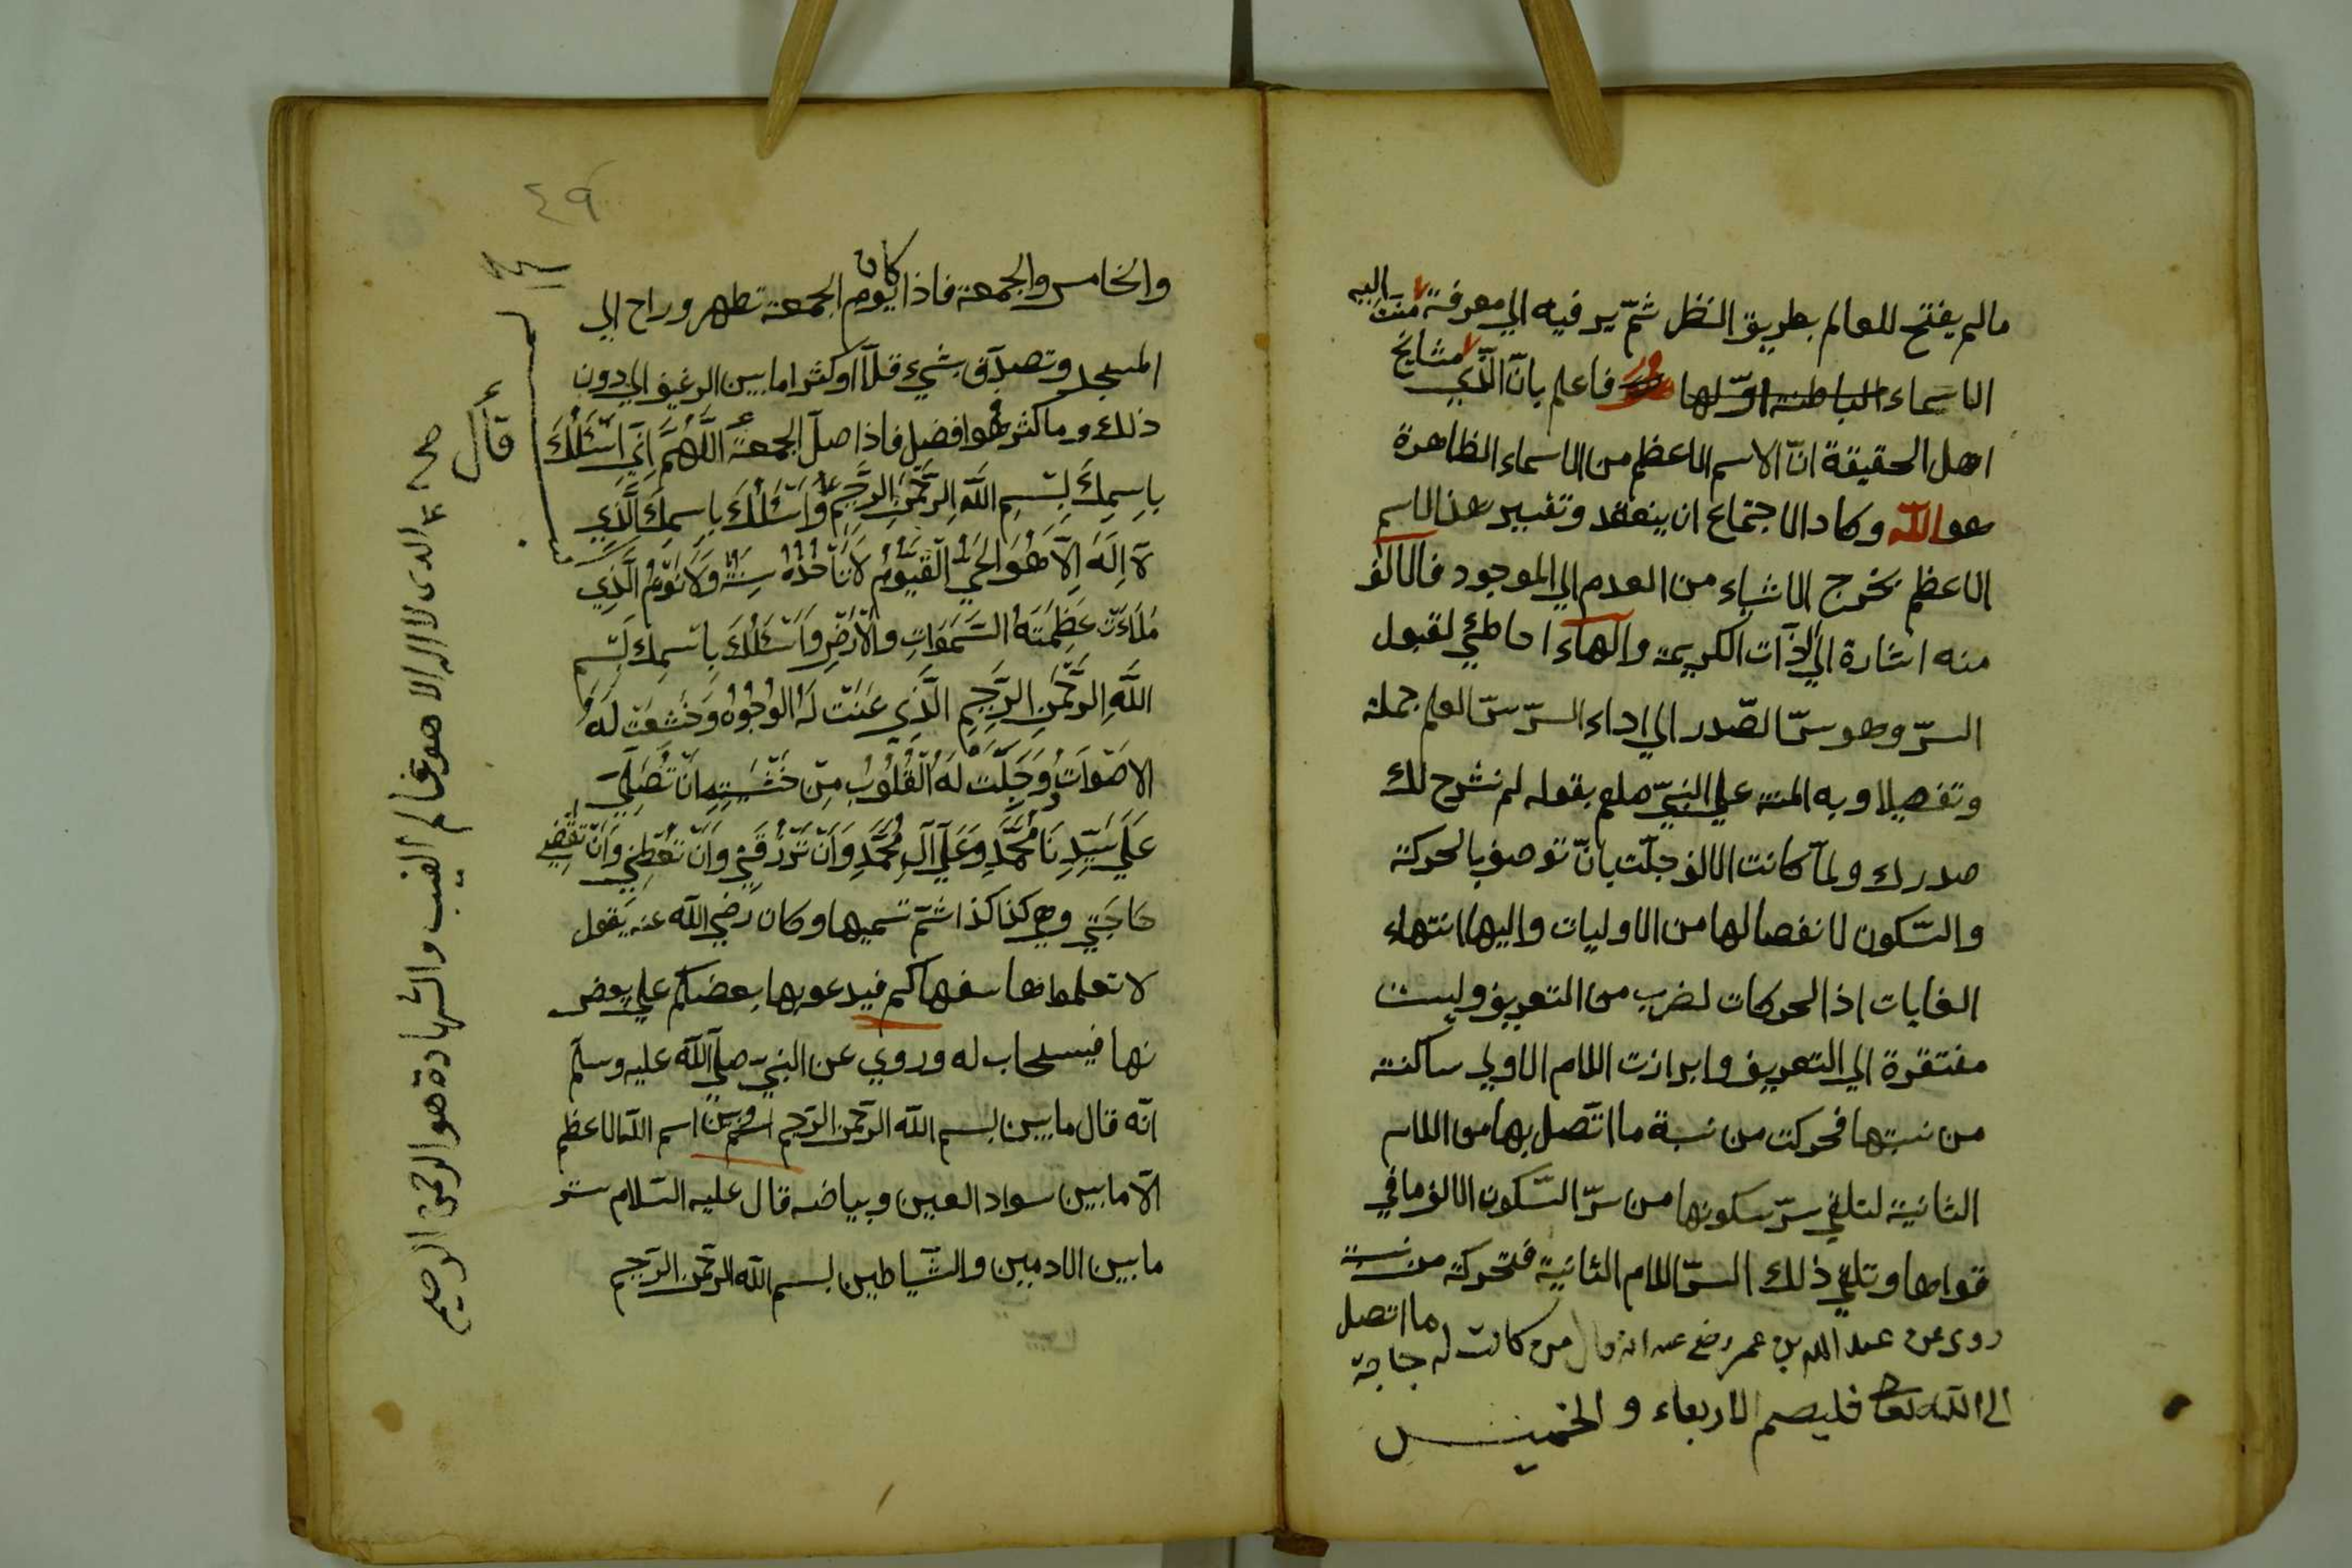 مالم يفتح للعالم بطريق النظر ثمّ يرفيه الي معرفة
الاسماء الباطنة اوّلها فاعلم بانّ الّذي مشايخ
اهل الحقيقة انّ الاسم الاعظم من الاسماء الظاهرة
هو اللّه وكاد الاجتماع ان ينعقد وتفسير هذا الاسم
الاعظم يخرج الاشياء من العدم الي الموجود فالالف
منه اشارة الي الذّات الكريمة والهاء احاطي لقبول
السرّ وهو سرّ الصّدر الي اداء السرّ سرّ العلم جملة
وتفصيلا وبه المنة علي النبيّ صلعم بقوله لم نشرح لك
صدرك ولمّا كانت الالف جلّت بانّ توصف بالحركة
والسّكون لانفصالها من الاوليات واليها انتهاء
الغايات اذ الحركات لضرب من التعريف وليست
مفتقرة الي التعريف وابرازت اللام الاولي ساكنة
من نسبتها فحركت من نسبة ما اتّصل بها من اللام
الثانية لتلقي سرّ سكونها من سرّ السّكون الالف ما في
قواها وتلقي ذلك السرّ اللام الثانية فتحركة من نسبة
ما اتصل
روى عن عبد الله بن عمر رضي عنه انه قال من كانت له حاجة
الى الله تعالى فليصم الاربعاء و الخميس
٤٩
والخامس والجمعة فاذا كان يوم الجمعة تطهر وراح الي
المسجد وتصدّق بشيء قلّا او كثر اما بين الرغيف الي دون
ذلك وما كثر فهو افضل فاذا صلّ الجمعة اللَّهُمَّ اِنِّي اَسْئَلُكَ
قال
بِاسِمِكَ بِسْمِ اللَّهِ الرَّحْمَنِ الرَّحِيمِ وَاَسْئَلُكَ بِاسِمِكَ الَّذِي
لَا اِلَهَ اِلَّا هُوَ الحَيُّ الْقَيُّوْمُ لَا تَأْخُذُهُ سِنَةٌ وَلَا نَوْمٌ الَّذِي
مَلَاءَتْ عَظِمَتَهُ السَّمَوَاتِ وَالْاَرْضِ وَاَسْئَلُكَ بِاسْمِكَ بِسْمِ
اللَّهِ الرَّحْمَنِ الرَّحِيمِ الَّذِي عَنَتْ لَهُ الوُجُوْهُ وَخَشَعَتْ لَهُ
الاَصْوَاتُ وَوَجِلَتْ لَهُ الْقُلُوْبُ مِنْ خَشْيَتِهِ اَنْ تُصَلِّيَ
عَلَي سَيِّدِنَا مُحَمَّدٍ وَعَلَي آلِ مُحَمَّدٍ وَاَنْ تَرْزُقَنِي وَاَنْ تُعْطِنِي وَاَنْ تَقْضِي
حَاجَتِي وهي كذا كذا ثمّ تسميها وكان رضي اللّه عنه يقول
لا تعلموها سفهاكم فيدعو بها بعضكم علي بعض
نها فيستجاب له وروي عن النبيّ صلّي اللّه عليه وسلّم
انّه قال ما بين بسم اللّه الرّحمن الرّحيم اسم اللّه الاعظم
الّا ما بين سواد العين وبياضه قال عليه السّلام ستر
ما بين الادميين والشّياطين بسم اللّه الرّحمن الرّحيم
الدى لا اله الا هو عالم الغيب والشهادة هو الرحمن الرحيم